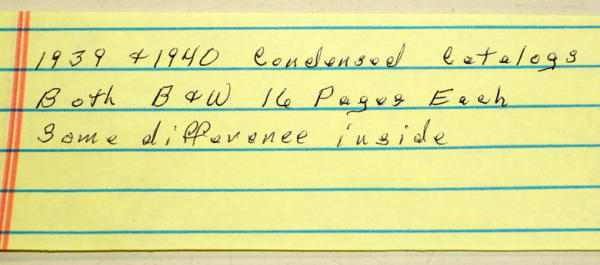 1939 & 1940 Condensed Catalogs
Both B&W 16 Pages Each
Some difference inside